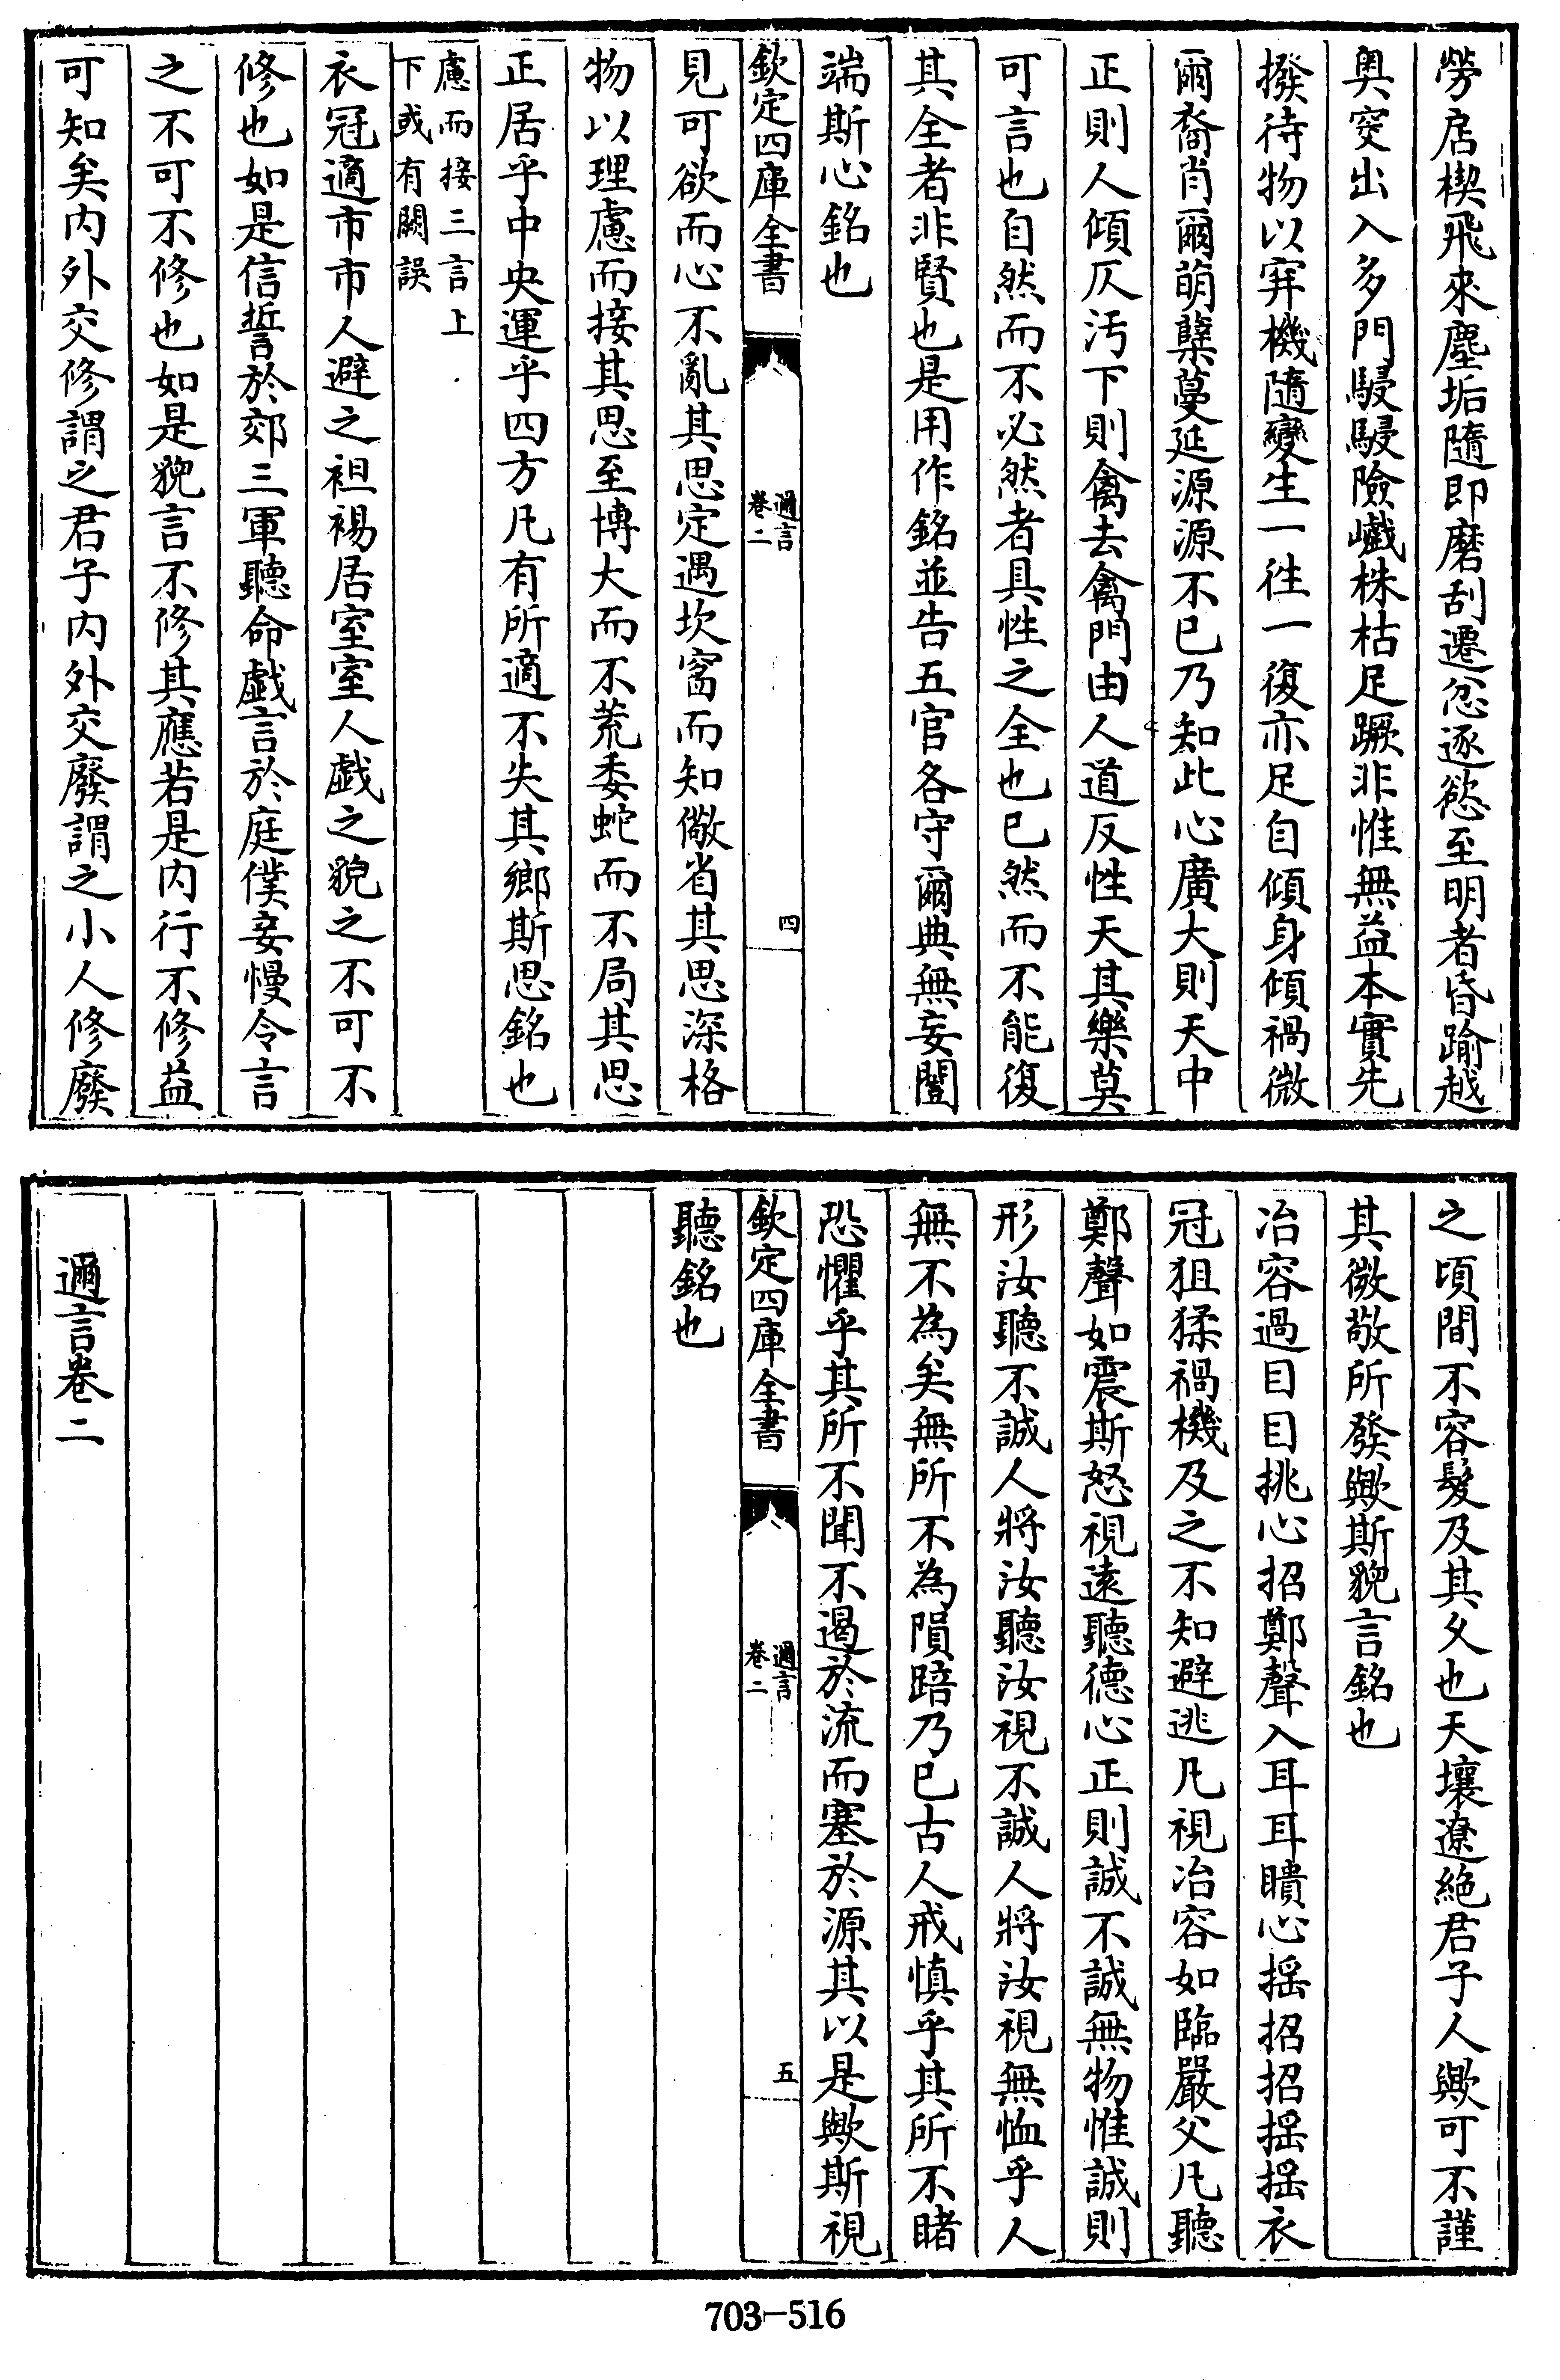 勞扂楔飛來塵垢隨即磨刮遷忿逐慾至明者昏踰越
奥穾出入多門駸駸險巇株枯足蹶非惟無益本實先
撥待物以穽機隨變生一徃一復亦足自傾身傾禍微
爾裔肖爾萌蘖蔓延源源不已乃知此心廣大則天中
正則人傾仄汚下則禽去禽門由人道反性天其樂莫
可言也自然而不必然者具性之全也已然而不能復
其全者非賢也是用作銘並告五官各守爾典無妄闓
端斯心銘也
欽定四庫全書
邇言
卷二
四
見可欲而心不亂其思定遇坎窞而知儆省其思深格
物以理慮而接其思至博大而不荒委蛇而不局其思
正居乎中央運乎四方凡有所適不失其鄉斯思銘也
慮而接三言上
下或有闕誤
衣冠適市市人避之袒裼居室室人戲之貌之不可不
修也如是信誓於郊三軍聽命戲言於庭僕妾慢令言
之不可不修也如是貌言不修其應若是内行不修益
可知矣内外交修謂之君子内外交廢謂之小人修廢
之頃間不容髮及其久也天壤遼絶君子人歟可不謹
其微敬所發歟斯貌言銘也
冶容過目目挑心招鄭聲入耳耳瞶心摇招招摇摇衣
冠狙猱禍機及之不知避逃凡視冶容如臨嚴父凡聽
鄭聲如震斯怒視逺聽德心正則誠不誠無物惟誠則
形汝聽不誠人將汝聽汝視不誠人將汝視無恤乎人
無不為矣無所不為隕踣乃已古人戒慎乎其所不睹
恐懼乎其所不聞不遏於流而塞於源其以是歟斯視
欽定四庫全書
邇言
卷二
五
聽銘也
邇言卷二
703-516